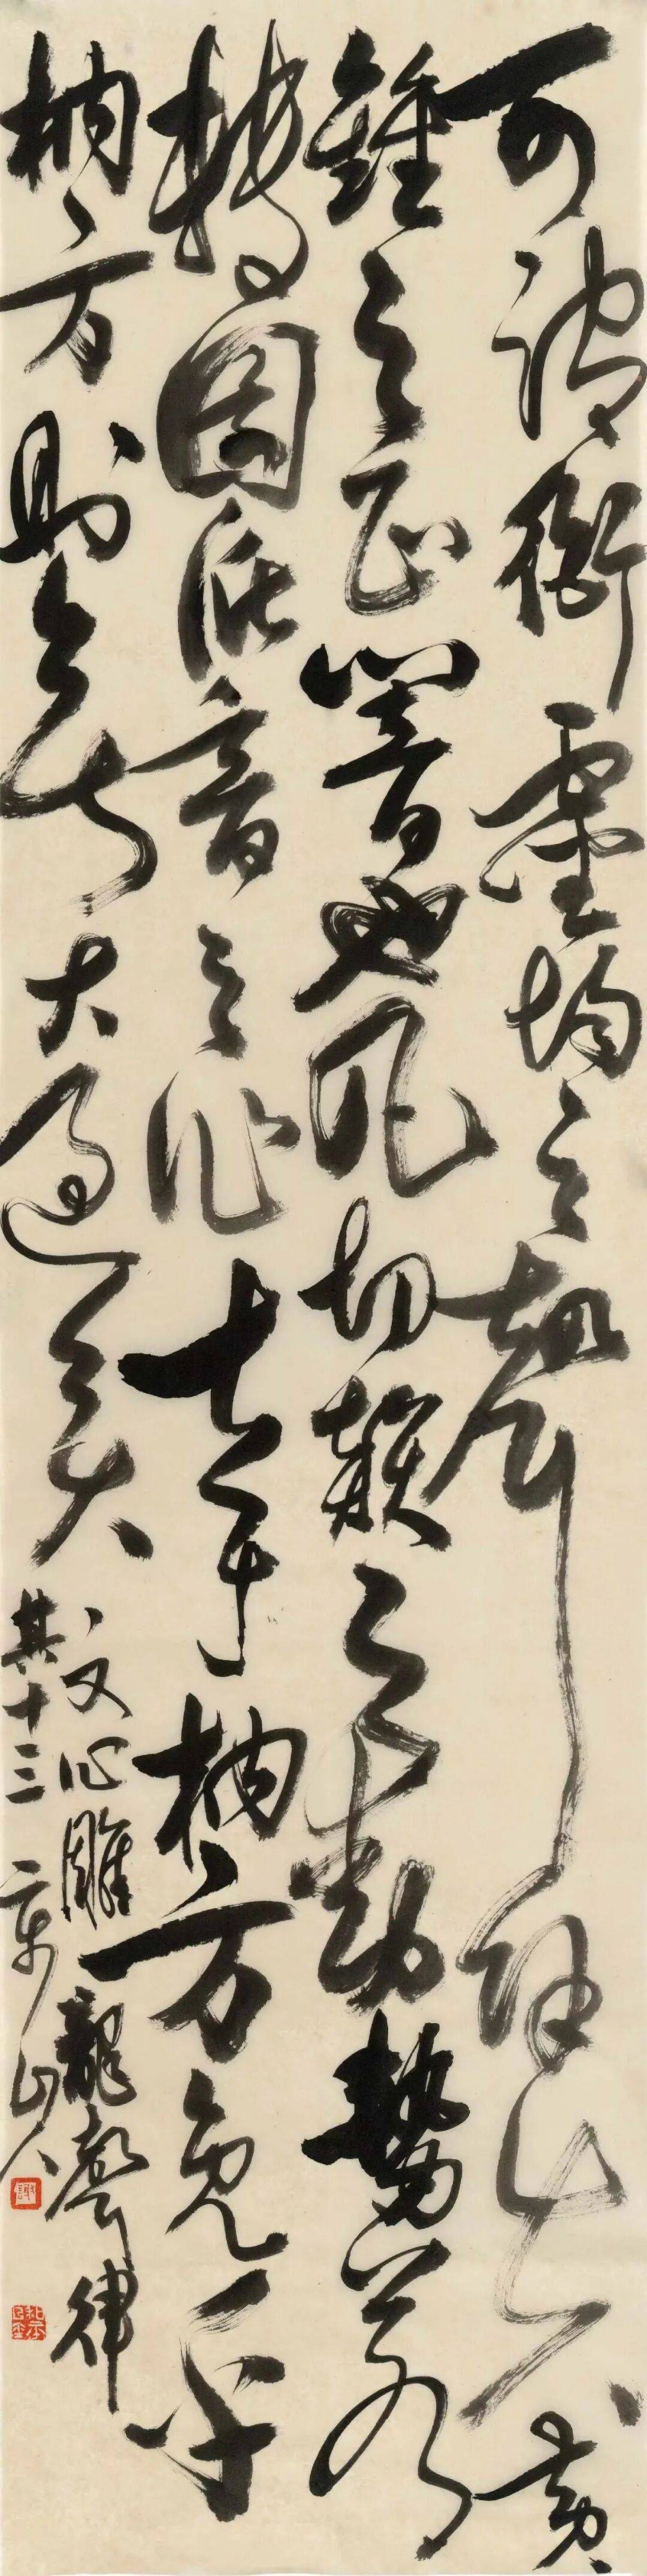 可謂銜靈均之聲餘失黃
鍾之正響也凡切韻之動勢若
轉圜訛音之作甚于枘方免乎
枘方則無大過矣
文心雕龍聲律
其十三 山人